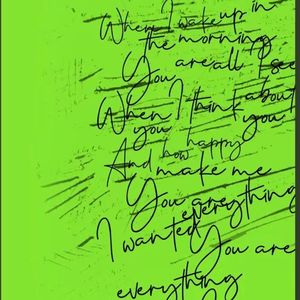 When I wake up in
the morning
You are all I see
When I think about
you
how happy you
And make me
You are
everything
I wanted
You are
everything